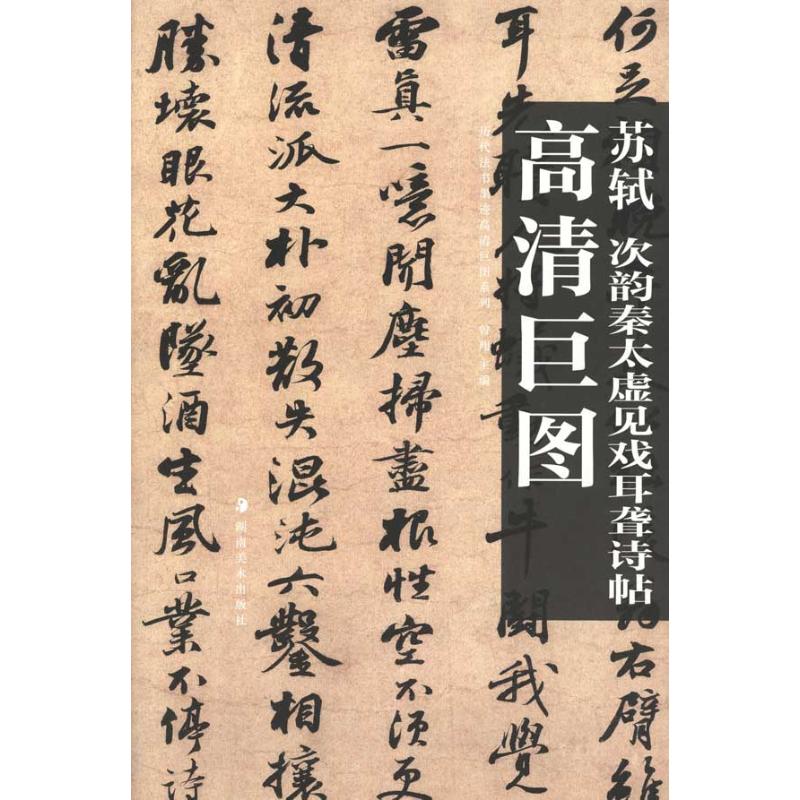 苏轼 次韵秦太虚见戏耳聋诗帖
高清巨图
历代法书墨迹高清巨图系列 曾翔 主编
湖南美术出版社
何足
右臂雖
耳先聵人將蟻動作牛鬭我覺
雷眞一噫聞塵掃盡根性空不須更
清流派大朴初散失混沌六鑿相攘
勝壞眼花亂墜酒生風口業不停詩